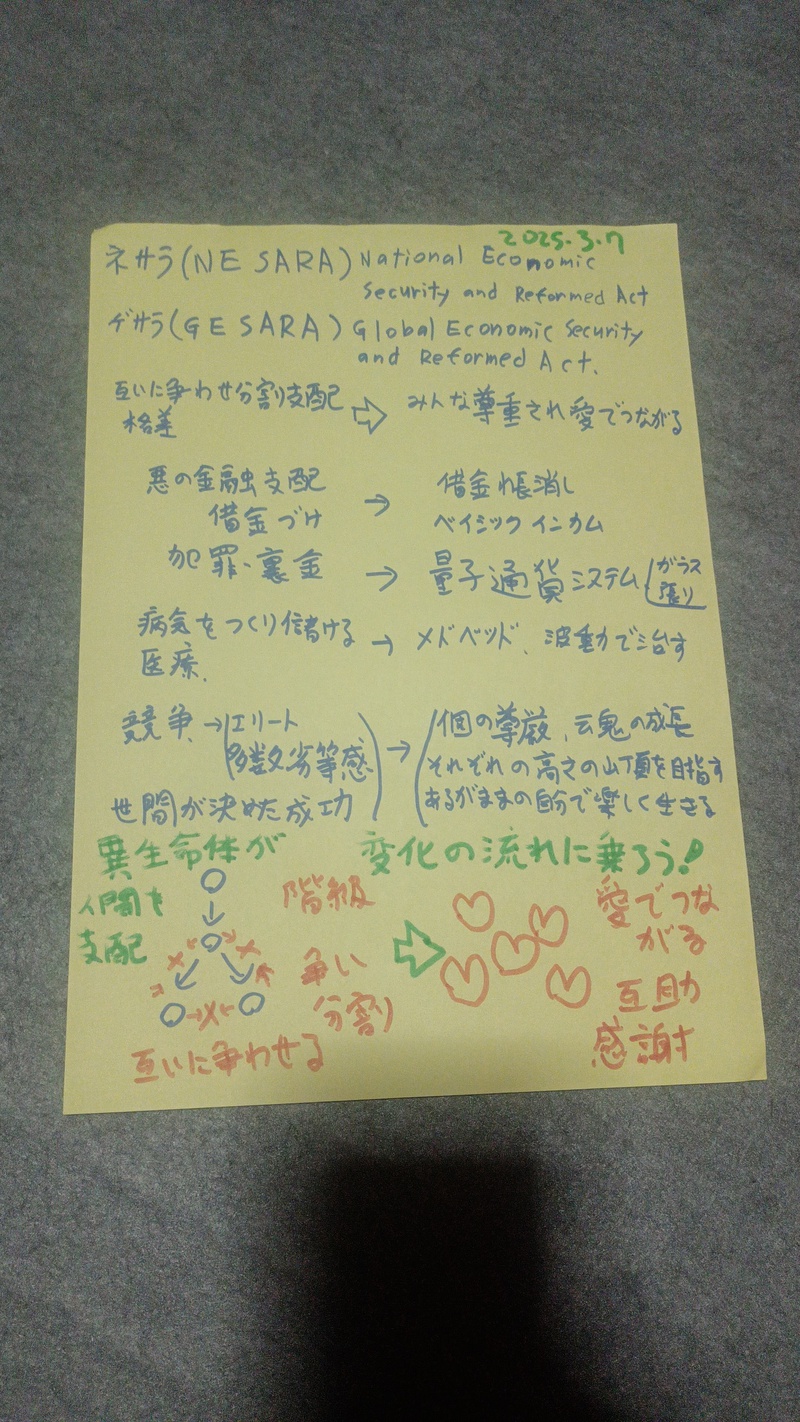 2025.3.7
ネサラ(NESARA) National Economic
Security and Reformed Act
ゲサラ(GESARA) Global Economic Security
and Reformed Act.
互いに争わせ分割支配 ⇨ みんな尊重され愛でつながる
格差
悪の金融支配 → 借金帳消し
借金づけ ベイシックインカム
犯罪、裏金 → 量子通貨システム(ガラス
張り
病気をつくり儲ける → メドベッド、波動で治す
医療、
競争→ エリート → 個の尊厳、魂の成長
多数劣等感 それぞれの高さの山頂を目指す
世間が決めた成功 あるがままの自分で楽しく生きる
異生命体が 変化の流れに乗ろう!
人間を 階級 愛でつな
支配 がる
争い 互助
分割 感謝
互いに争わせる